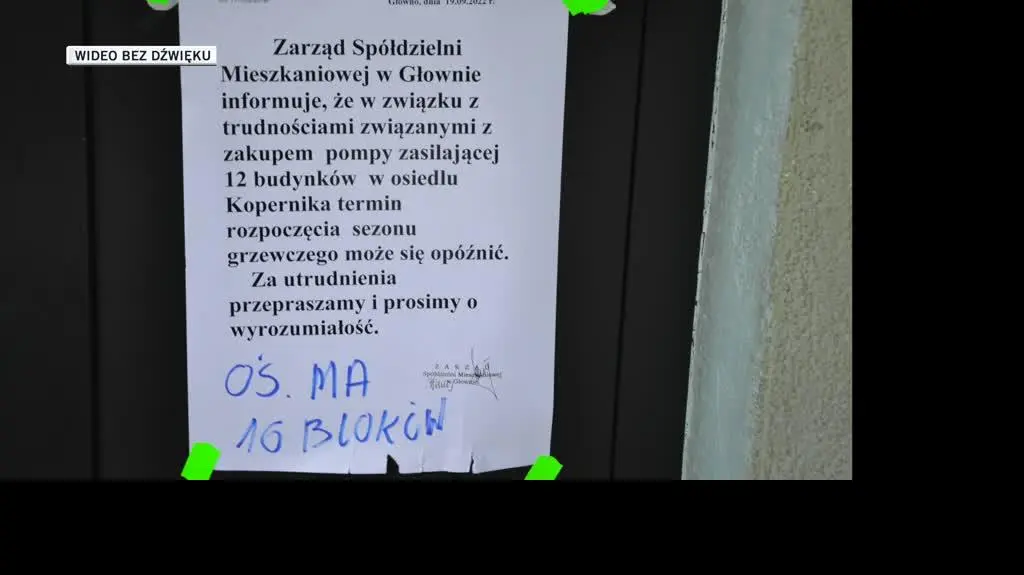 Głowno, dnia 19.09.2022 r.
WIDEO BEZ DŹWIĘKU
Zarząd Spółdzielni
Mieszkaniowej w Głownie
informuje, że w związku z
trudnościami związanymi z
zakupem pompy zasilającej
12 budynków w osiedlu
Kopernika termin
rozpoczęcia sezonu
grzewczego może się opóźnić.
Za utrudnienia
przepraszamy i prosimy o
wyrozumiałość.
OŚ. MA
16 BLOKÓW
ZARZĄD
Spółdzielni Mieszkaniowej
w Głownie